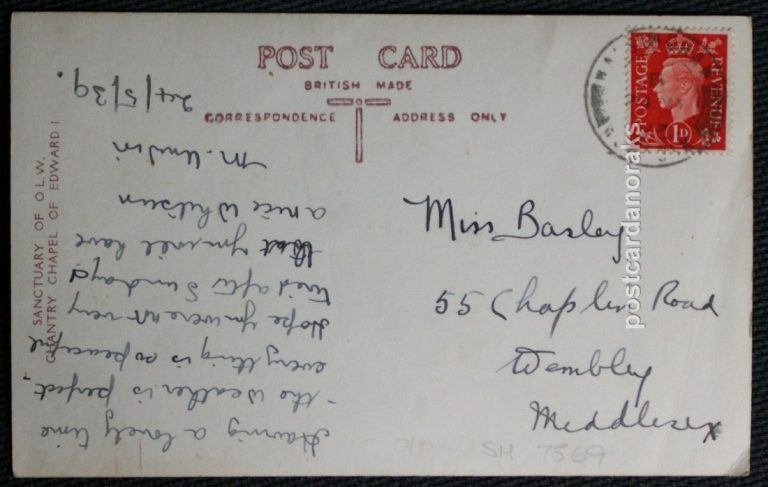 POST CARD
BRITISH MADE
CORRESPONDENCE ADDRESS ONLY
SANCTUARY OF O.L.W.
CHANTRY CHAPEL OF EDWARD I
Having a lovely time
- the weather is perfect
everything is so peaceful
Hope you were not very
tired after Sunday &
that you will have
a nice Whitsun
24/5/39
Miss Basley
55 Chaplin Road
Wembley
Middlesex
SH 7569
POSTAGE
REVENUE
1D
postcardanoraks